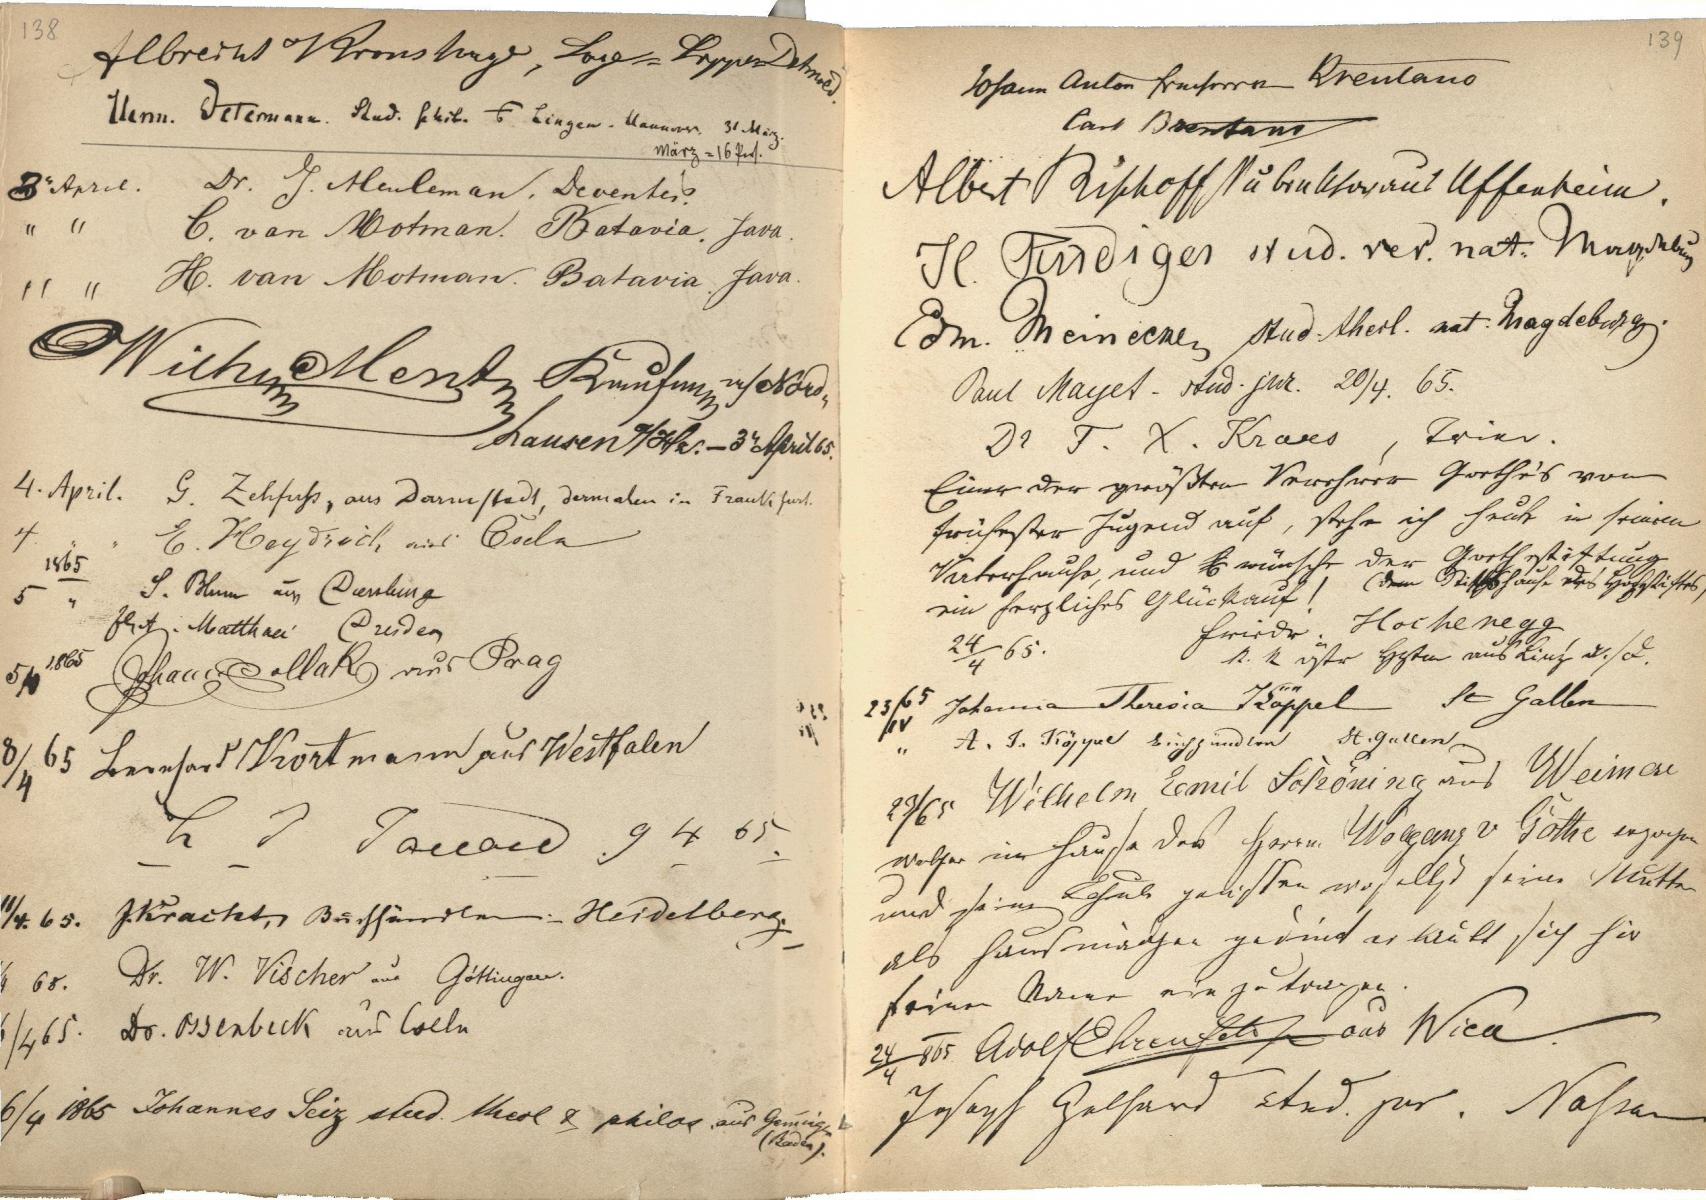 138
Albrecht Kronshage, Lage = Lippe = Detmold.
Herm. Determann. Stud. phil. Lingen. Hannover. 31 März.
März = 16 Pers.
3 April. Dr. J. Meuleman. Deventer.
" " C. van Motman. Batavia. Java.
" " H. van Motman. Batavia. Java.
Wilh. Mentz Kaufmann Nord-
hausen a/Hz. – 3 April 65.
4. April. G. Zehfuss, aus Darmstadt, dermalen in Frankfurt.
4 " " E. Heydrich aus Coeln
1865
5 " S. Blum aus Duisburg
Matthaei Dresden
5/4 1865 Pollak aus Prag
8/4 65 Bernhard Kortmann aus Westfalen
9 4 65.
11/4. 65. Kracht, Buchhändler – Heidelberg.
65. Dr. W. Vischer aus Göttingen.
/4 65. Dr. Essenbeck aus Coeln
6/4 1865 Johannes Seiz stud. theol & philos. aus Gemmingen
(Baden).
139
Johann Anton Freiherrn Brentano
Carl Brentano
Albert Bischoff Subrektor aus Uffenheim.
H. stud. rer. nat. Magdeburg
Edm. Meinecke, stud. theol. nat. Magdeburg.
Paul Mayet – stud. jur. 20/4. 65.
Dr F. X. Kraus, Trier.
Einer der größten Verehrer Goethe's von
frühester Jugend auf, stehe ich heute in seinem
Vaterhause, und wünsche der Goethestiftung
(dem Stiftshause des Hochstiftes)
ein herzliches Glückauf!
24/4 65. Friedr. Hochenegg
k. k. östr Hptm aus Linz a./d.
23/IV 65 Johanna Theresia Köppel St Gallen
" A. J. Köppel Buchhändler St. Gallen
23/65 Wilhelm Emil Schöning aus Weimar
welcher im Hause des Herrn Wolfgang v Göthe erzogen
und seine Schule genossen woselbst seine Mutter
als Hausmädchen gedient erlaubt sich hir
seinen Name ein zu tragen.
24/4 865 Adolf Ehrenfels aus Wien.
Joseph Gelhard stud. jur. Nassau